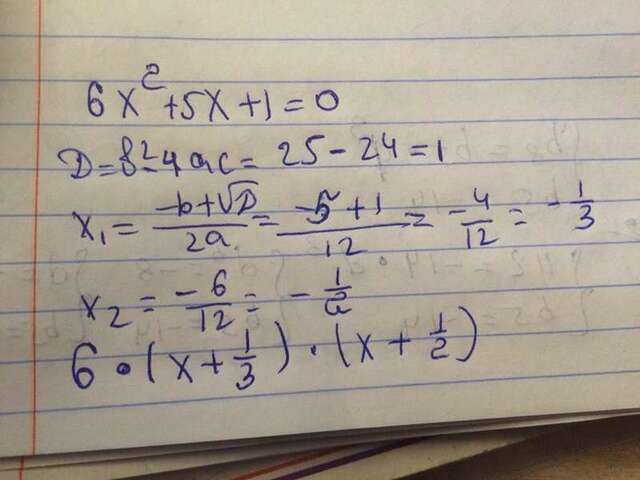 6x²+5x+1=0
D=b²-4ac=25-24=1
x₁=(-b+√D)/2a=(-5+1)/12=-4/12=-1/3
x₂=-6/12=-1/2
6•(x+1/3)•(x+1/2)